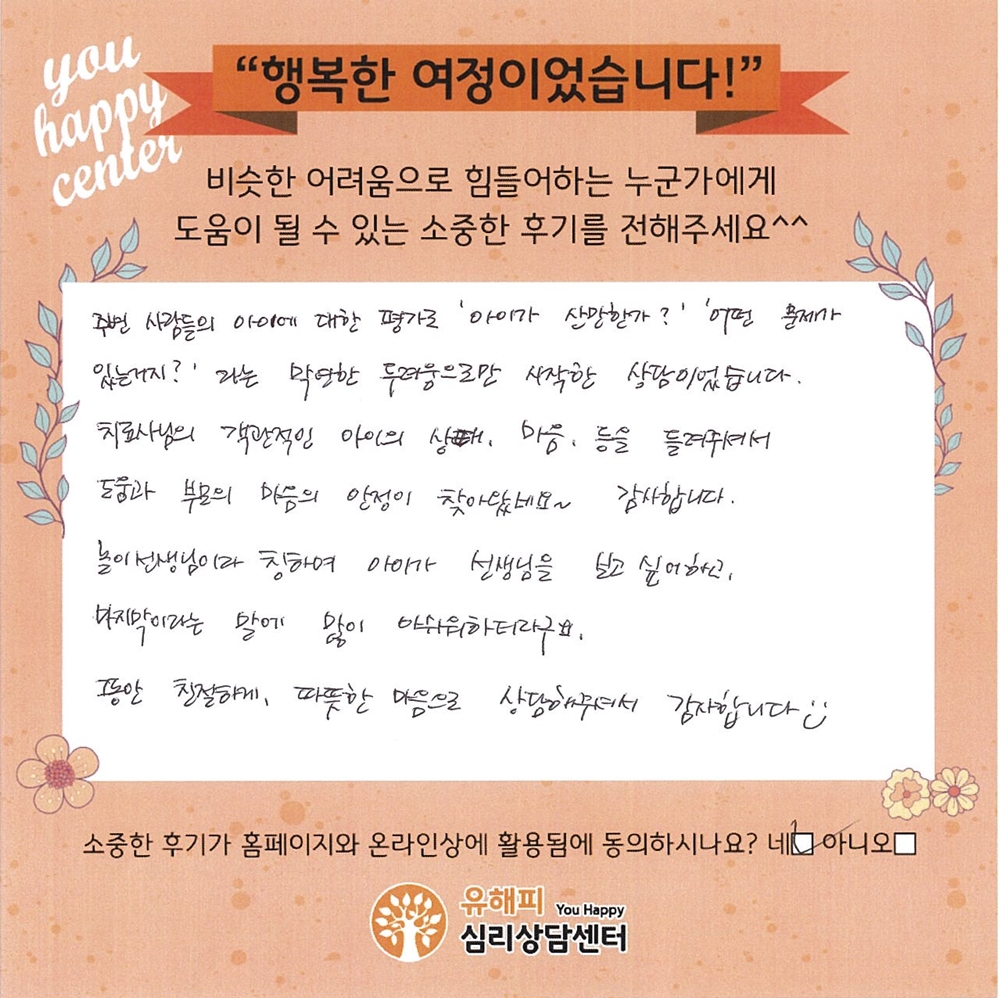 you
happy
center
“행복한 여정이었습니다!”
비슷한 어려움으로 힘들어하는 누군가에게
도움이 될 수 있는 소중한 후기를 전해주세요^^
주변 사람들의 아이에 대한 평가로 '아이가 산만한가?' '어떤 문제가
있는거지?' 라는 막연한 두려움으로만 시작한 상담이었습니다.
치료사님의 객관적인 아이의 상태, 마음, 등을 들려주셔서
도움과 부모의 마음의 안정이 찾아왔네요~ 감사합니다.
놀이선생님이라 칭하며 아이가 선생님을 보고 싶어하고,
마지막이라는 말에 많이 아쉬워하더라구요.
그동안 친절하게, 따뜻한 마음으로 상담해주셔서 감사합니다 :)
소중한 후기가 홈페이지와 온라인상에 활용됨에 동의하시나요? 네 아니오
유해피 You Happy
심리상담센터